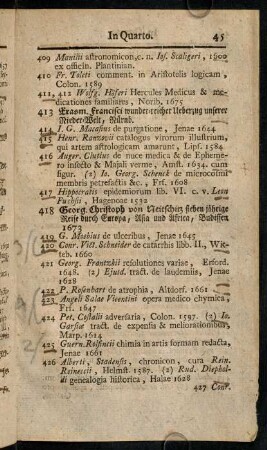 In Quarto. 45
409 Manilii astronomicon, c. n. Ios. Scaligeri, 1600
ex officin. Plantinian.
410 Fr. Toleti comment. in Aristotelis logicam,
Colon. 1589
411, 412 Wolfg. Höferi Hercules Medicus & me-
dicationes familiares, Norib. 1675
413 Erasm. Francisci wunder-reicher Ueberzug unserer
Nieder-Welt, Nürnb.
414 I. G. Macasius de purgatione, Jenae 1644
415 Henr. Ranzovii catalogus virorum illustrium,
qui artem astrologicam amarunt, Lips. 1584
416 Auger. Clutius de nuce medica & de Epheme-
ro insecto & Majali verme, Amst. 1634. cum
figur. (2) Io. Georg. Schenck de microcosmi
membris petrefactis &c. Frf. 1608
417 Hippocratis epidemiorum lib. VI. c. v. Leon
Fuchsii, Hagenoae 1532
418 Georg Christoph von Neitschitz sieben jährige
Reise durch Europa, Asia und Africa, Budissen
1673
419 G. Moebius de ulceribus, Jenae 1645
420 Conr. Vict. Schneider de catarrhis libb. II., Wit-
teb. 1660
421 Georg. Frantzkii resolutiones variae, Erford.
1648. (2) Ejusd. tract. de laudemiis, Jenae
1628
422 P. Rosenbart de atrophia, Altdorf. 1661
423 Angeli Salae Vicentini opera medico chymica,
Frf. 1647
424 Pet. Costalii adversaria, Colon. 1597. (2) Io.
Garsiae tract. de expensis & meliorationibus,
Marp. 1614
425 Guern. Rolfincii chimia in artis formam redacta,
Jenae 1661
426 Alberti, Stadensis, chronicon, cura Rein.
Reineccii, Helmst. 1587. (2) Rud. Diephol-
di genealogia historica, Halae 1628
427 Conr.